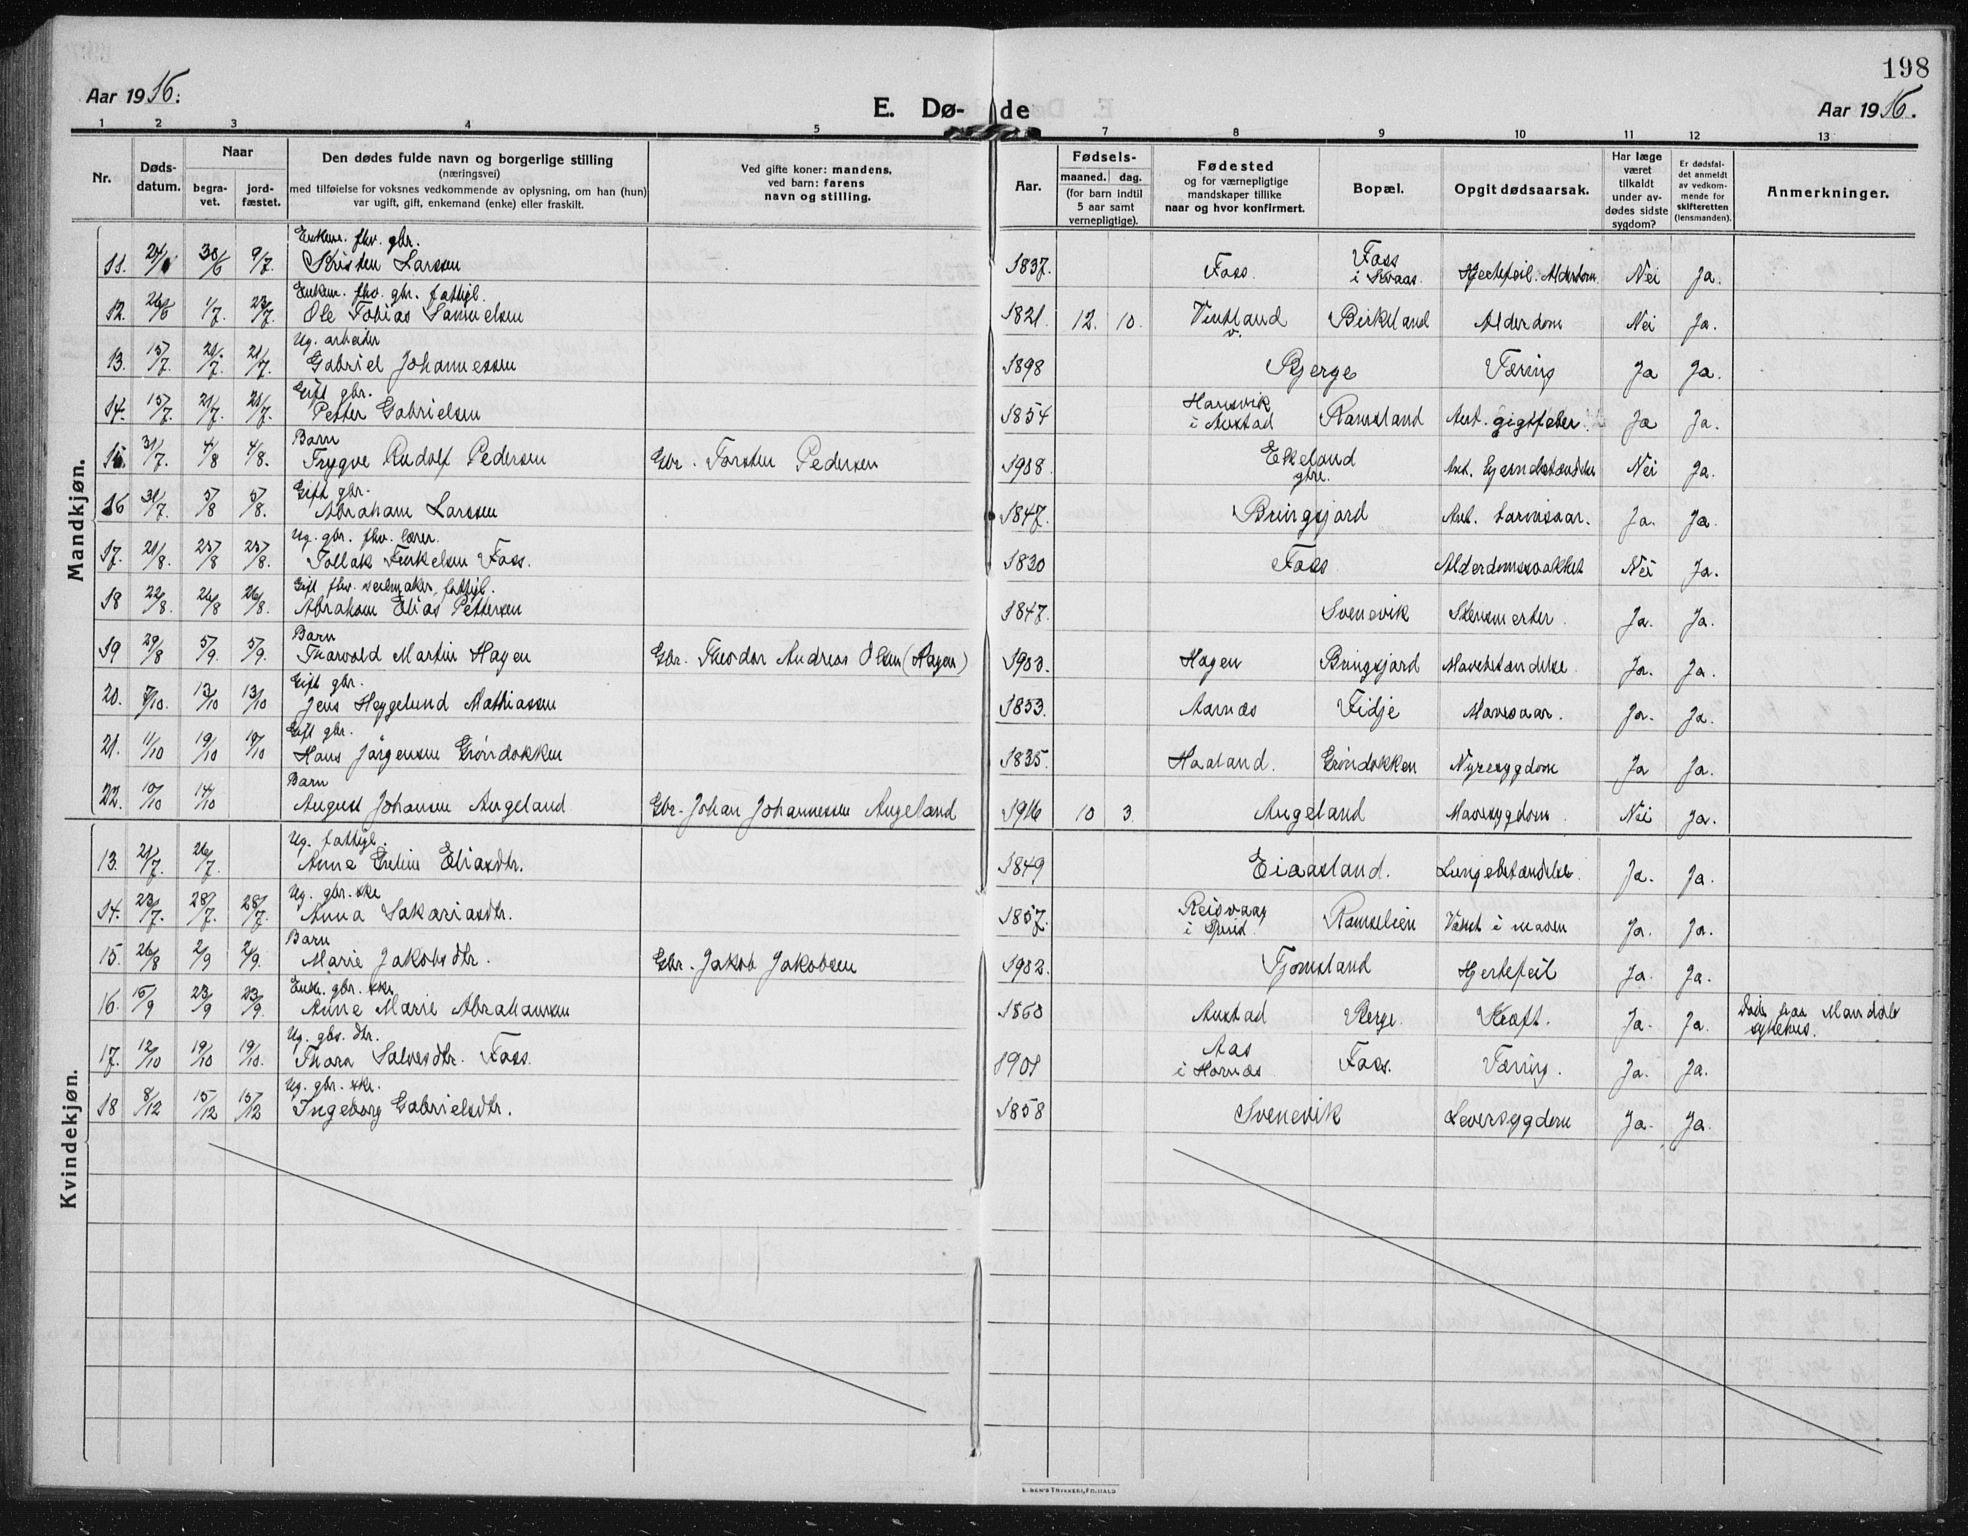 198
Aar 1916.
E. Døde
Aar 1916.
1 2 3 4 5 7 8 9 10 11 12 13
Nr.
Døds-
datum.
Naar
begra-
vet.
jord-
fæstet.
Den dødes fulde navn og borgerlige stilling
(næringsvei)
med tilføielse for voksnes vedkommende av oplysning, om han (hun)
var ugift, gift, enkemand (enke) eller fraskilt.
Ved gifte koner: mandens,
ved barn: farens
navn og stilling.
Aar.
Fødsels-
maaned. dag.
(for barn indtil
5 aar samt
vernepligtige).
Fødested
og for værnepligtige
mandskaper tillike
naar og hvor konfirmert.
Bopæl.
Opgit dødsaarsak.
Har læge
været
tilkaldt
under av-
dødes sidste
sygdom?
Er dødsfal-
det anmeldt
av vedkom-
mende for
skifteretten
(lensmanden).
Anmerkninger.
Mandkjøn.
Enkem. fhv. gbr.
11. 30/6 9/7. Kristen Larssen 1837. Foss. Foss Hjertefeil. Alderdom. Nei Ja.
Enkem. fhv. gbr. fattigl.
12. 26/6 1/7. 23/7. Ole Tobias Samuelsen 1821. 12. 10. Vintland Birkeland Alderdom Nei Ja.
v.
Ug. arbeider
13. 15/7. 21/7. 21/7. Gabriel Johannessen 1898 Bjerge Tæring Ja Ja.
Gift gbr.
14. 15/7. 21/7. 21/7. Petter Gabrielsen 1854 Hansvik Ramsland Ant. gigtfeber Ja Ja.
i Austad
Barn
15. 31/7. 4/8 4/8. Trygve Rudolf Pedersen Gbr. Torsten Pedersen 1908. Eikeland Nei Ja.
Gift gbr.
16 31/7. 5/8 5/8. Abraham Larssen 1847. Bringsjord Ja. Ja
Ug. gbr. fhv. lærer.
17. 21/8. 25/8 25/8. Tollak Terkelsen Foss. 1830 Foss Alderdomssvakhet Nei Ja.
Gift fhv. seilmaker, fattigl.
18 22/8. 26/8 26/8. Abraham Elias Pettersen 1847. Svenevik Stensmerter. Ja. Ja.
Barn
19 29/8 5/9. 5/9. Tharvald Martin Hagen Gbr. Theodor Andreas Olsen (Hagen) 1903. Hagen Bringsjord Mavebetændelse. Ja. Ja.
Gift gbr.
20. 7/10. 13/10 13/10 Jens Heggelund Mathiassen 1853. Aarnæs Fidje Mavesaar. Ja. Ja.
Gift gbr.
21. 11/10 19/10 19/10 Hans Jørgensen Grøndokken 1835. Haaland. Grøndokken Nyresygdom Ja Ja.
Barn
22. 10/10 14/10 August Johansen Augeland Gbr. Johan Johannessen Augeland 1916 10 3. Augeland Mavesygdom. Nei Ja.
Kvindekjøn.
Ug. fattigl.
13. 21/7. 26/7. Anne Eliasdtr. 1849 Eiaasland. Lungebetændelse. Ja. Ja.
Ug. gbr. ske
14. 23/7. 28/7. 28/7. Anna Sakariasdtr. 1857. Reisvaag Ramselien Vækst i maven Ja. Ja.
i Spind
Barn
15. 26/8 2/9 2/9. Marie Jakobsdtr. Gbr. Jakob Jakobsen 1902. Fjomsland Hjertefeil Ja. Ja.
Enke. gbr. ske
16. 15/9 23/9 23/9. Anne Marie Abrahamsen 1863 Austad Berge. Kræft. Ja. Ja. Døde paa Mandals
sykehus.
Ug. gbs. dtr.
17. 12/10 19/10 19/10. Thora Salvesdtr. Foss. 1901 Aas Foss. Tæring. Ja. Ja.
i Hornæs
Ug. gbr. ske.
18 8/12 15/12 15/12 Ingeborg Gabrielsdtr. 1858 Svenevik Leversygdom Ja. Ja.